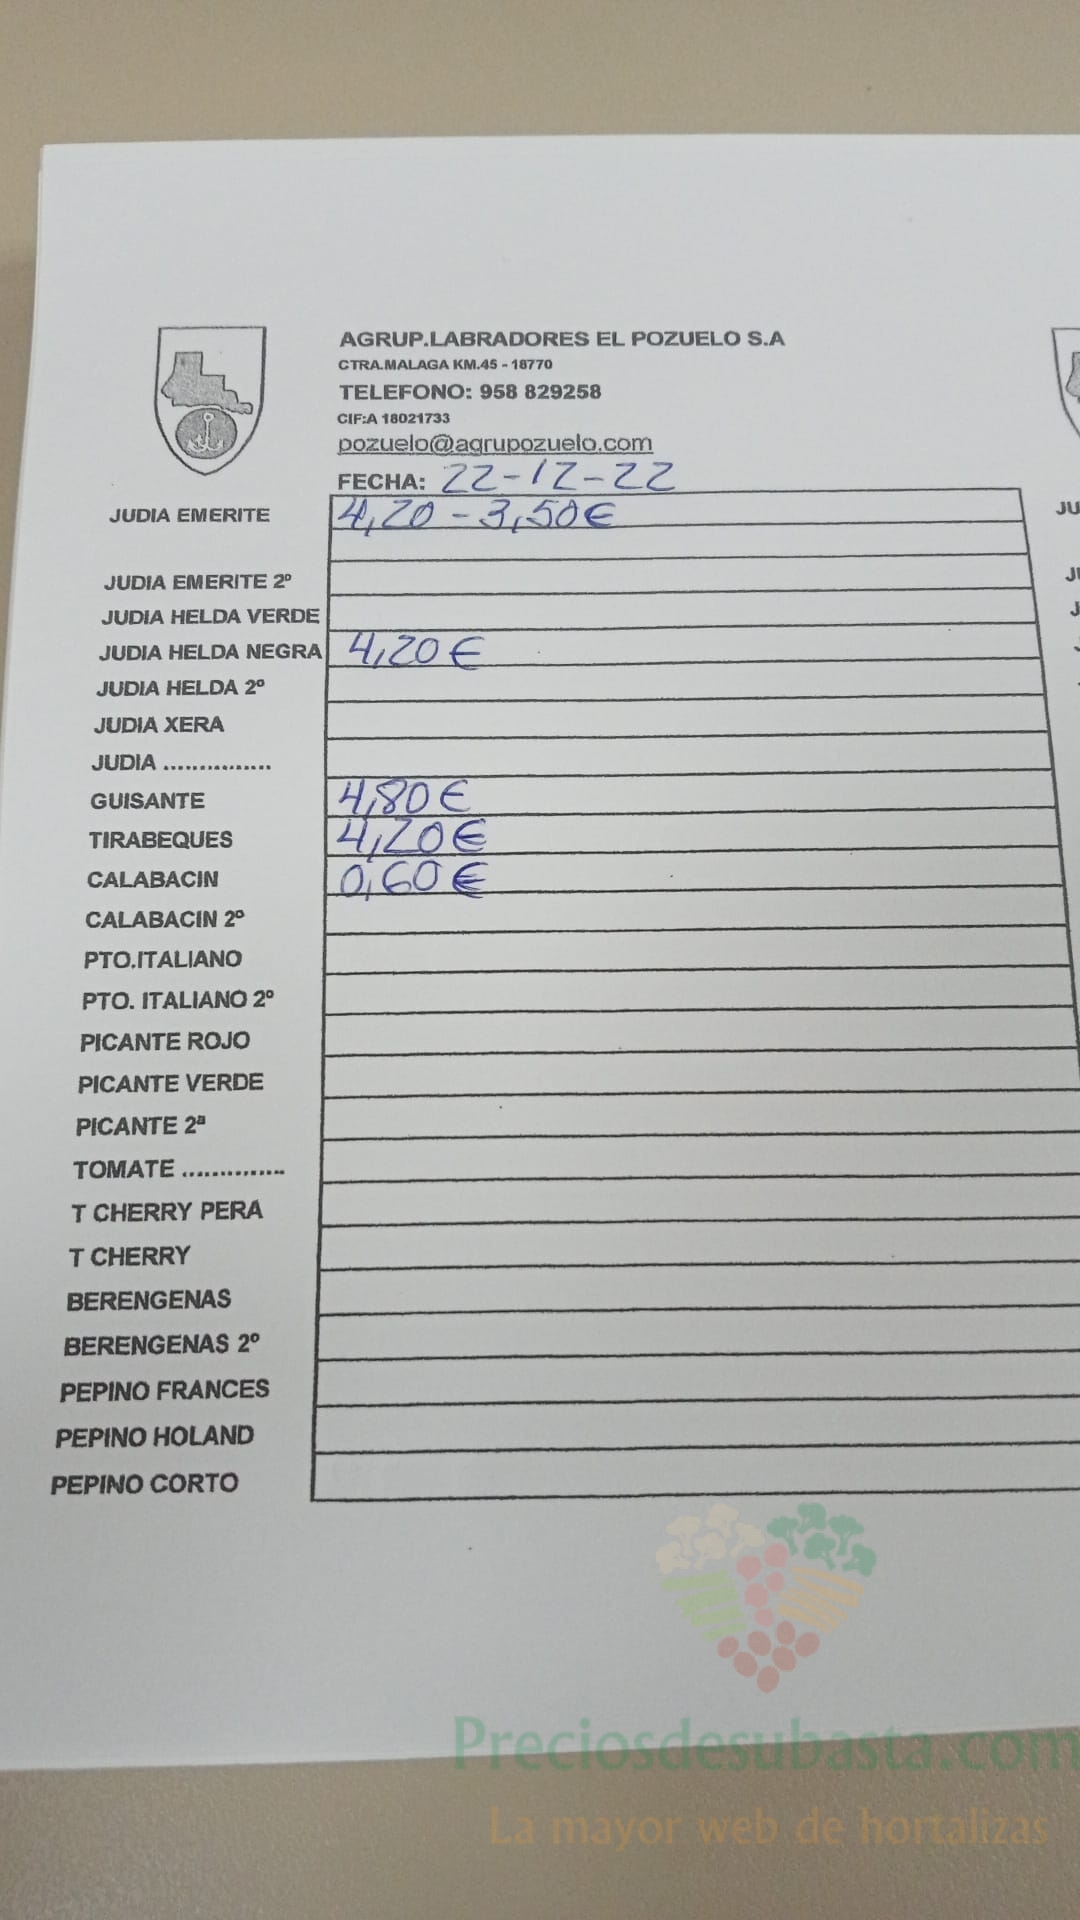 AGRUP.LABRADORES EL POZUELO S.A
CTRA.MALAGA KM.45 - 18770
TELEFONO: 958 829258
CIF:A 18021733
pozuelo@agrupozuelo.com
FECHA: 22-12-22
JUDIA EMERITE 4,20 - 3,50€
JUDIA EMERITE 2º
JUDIA HELDA VERDE
JUDIA HELDA NEGRA 4,20€
JUDIA HELDA 2º
JUDIA XERA
JUDIA ...............
GUISANTE 4,80€
TIRABEQUES 4,20€
CALABACIN 0,60€
CALABACIN 2º
PTO.ITALIANO
PTO. ITALIANO 2º
PICANTE ROJO
PICANTE VERDE
PICANTE 2ª
TOMATE ..............
T CHERRY PERA
T CHERRY
BERENGENAS
BERENGENAS 2º
PEPINO FRANCES
PEPINO HOLAND
PEPINO CORTO
Preciosdesubasta.com
La mayor web de hortalizas